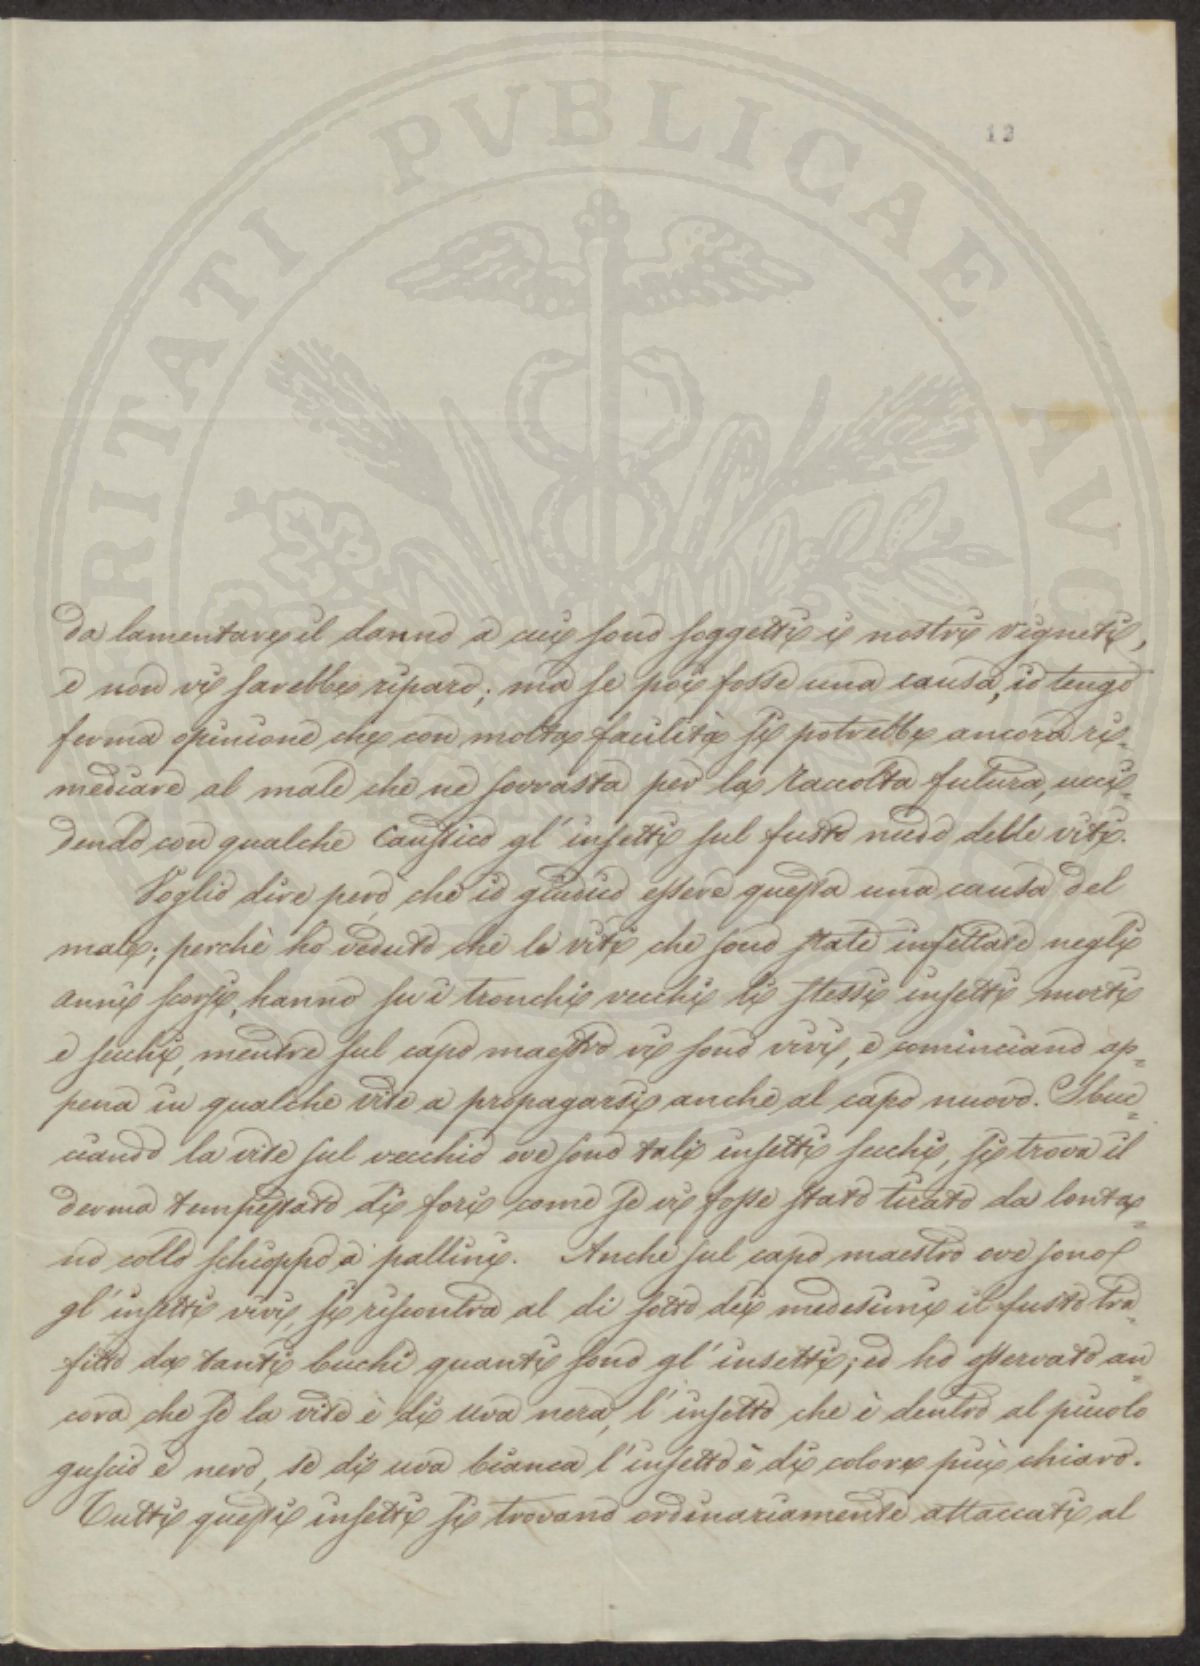 PVBLICAE
RITATI
AVC
12
da lamentare il danno a cui sono soggetti i nostri vigneti,
e non vi sarebbe riparo; ma se poi fosse una causa, io tengo
ferma opinione che con molta facilità si potrebbe ancora ri=
mediare al male che ne sovrasta per la raccolta futura, ucci=
dendo con qualche caustico gl'insetti sul fusto nudo delle viti.
Voglio dire però che io giudico essere questa una causa del
male; perchè ho veduto che le viti che sono state infettate negli
anni scorsi, hanno su i tronchi vecchi li stessi insetti morti
e secchi, mentre sul capo maestro vi sono vivi, e cominciano ap=
pena in qualche vite a propagarsi anche al capo nuovo. Sbuc=
ciando la vite sul vecchio ove sono tali insetti secchi, si trova il
derma tempestato di fori come se vi fosse stato tirato da lonta=
no collo schioppo a pallini. Anche sul capo maestro ove sono
gl'insetti vivi si riscontra al di sotto dei medesimi il fusto tra=
fitto da tanti buchi quanti sono gl'insetti; ed ho osservato an=
cora che se la vite è di uva nera, l'insetto che è dentro al piccolo
guscio è nero, se di uva bianca l'insetto è di colore più chiaro.
Tutti questi insetti si trovano ordinariamente attaccati al